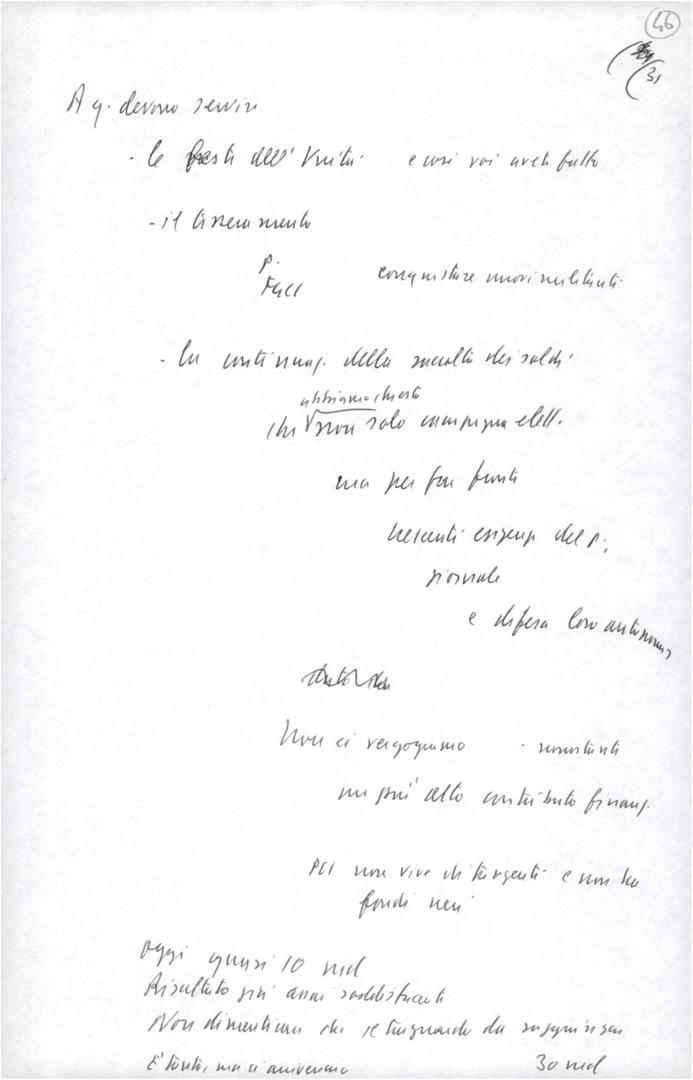 46
31
A q. devono servire
- le feste dell'Unità e così voi avete fatto
- il tesseramento
P.
FGCI conquistare nuovi militanti
- la continuaz. della raccolta dei soldi
abbiamo chiesto
che non solo campagna elett.
ma per far fronte
crescenti esigenze del P.,
giornale
e difesa loro autonomia
Non ci vergogniamo - nonostante
un più alto contributo finanz.
PCI non vive di tangenti e non ha
fondi neri
oggi quasi 10 mld
Risultato già assai soddisfacente
Non dimenticare che il traguardo da raggiungere
È tanto, ma ci arriveremo 30 mld